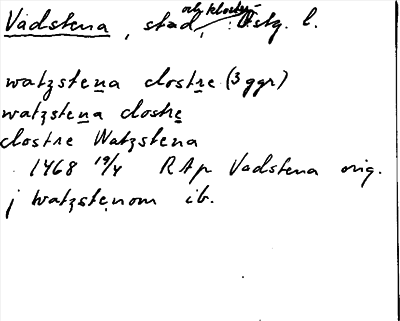 Vadstena, stad, och kloster, : Östg. l.
watzstena clostre (3 ggr)
watzstena clostre
clostre Watzstena
1468 19/4 RAp Vadstena orig.
j watzstenom ib.